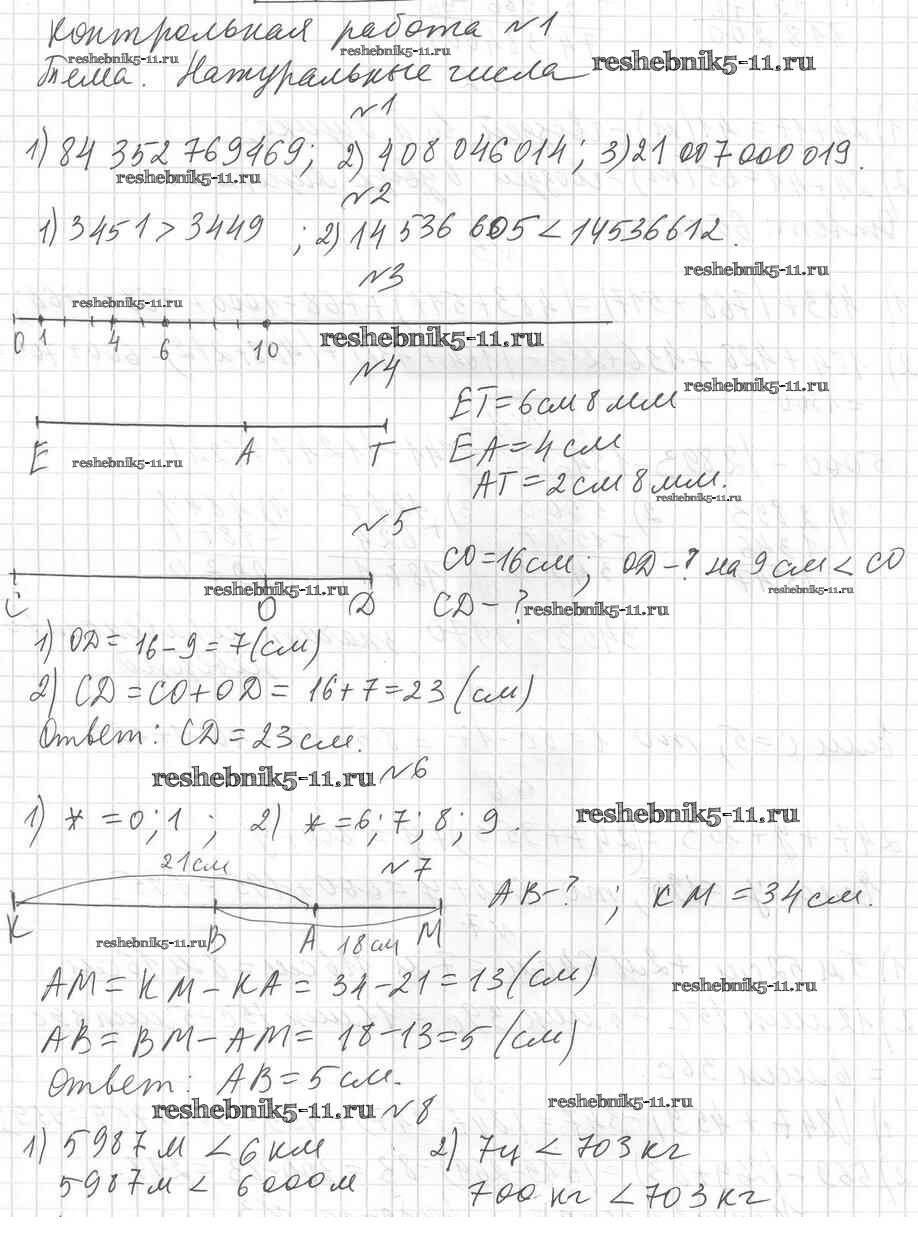 Контрольная работа №1
reshebnik5-11.ru reshebnik5-11.ru reshebnik5-11.ru
Тема. Натуральные числа
№1
1) 84 352 769469; 2) 408 046014; 3) 21 007 000 019.
reshebnik5-11.ru
№2
1) 3451 > 3449 ; 2) 14 536 605 < 14536612.
№3
reshebnik5-11.ru
reshebnik5-11.ru
0 1 4 6 10
reshebnik5-11.ru
№4
reshebnik5-11.ru
ET = 6 см 8 мм
E A T
reshebnik5-11.ru
EA = 4 см
AT = 2 см 8 мм.
reshebnik5-11.ru
№5
CO = 16 см; OD - ? на 9 см < CO
reshebnik5-11.ru reshebnik5-11.ru
C O D
CD - ?
reshebnik5-11.ru
1) OD = 16 - 9 = 7 (см)
2) CD = CO + OD = 16 + 7 = 23 (см)
Ответ: CD = 23 см.
reshebnik5-11.ru №6
1) * = 0; 1 ; 2) * = 6; 7; 8; 9.
reshebnik5-11.ru
№7
21 см
AB - ? ; KM = 34 см.
K B A M
18 см
reshebnik5-11.ru
AM = KM - KA = 34 - 21 = 13 (см)
reshebnik5-11.ru
AB = BM - AM = 18 - 13 = 5 (см)
Ответ: AB = 5 см.
reshebnik5-11.ru №8
reshebnik5-11.ru
1) 5987 м < 6 км 2) 7ц < 703 кг
5987 м < 6000 м 700 кг < 703 кг